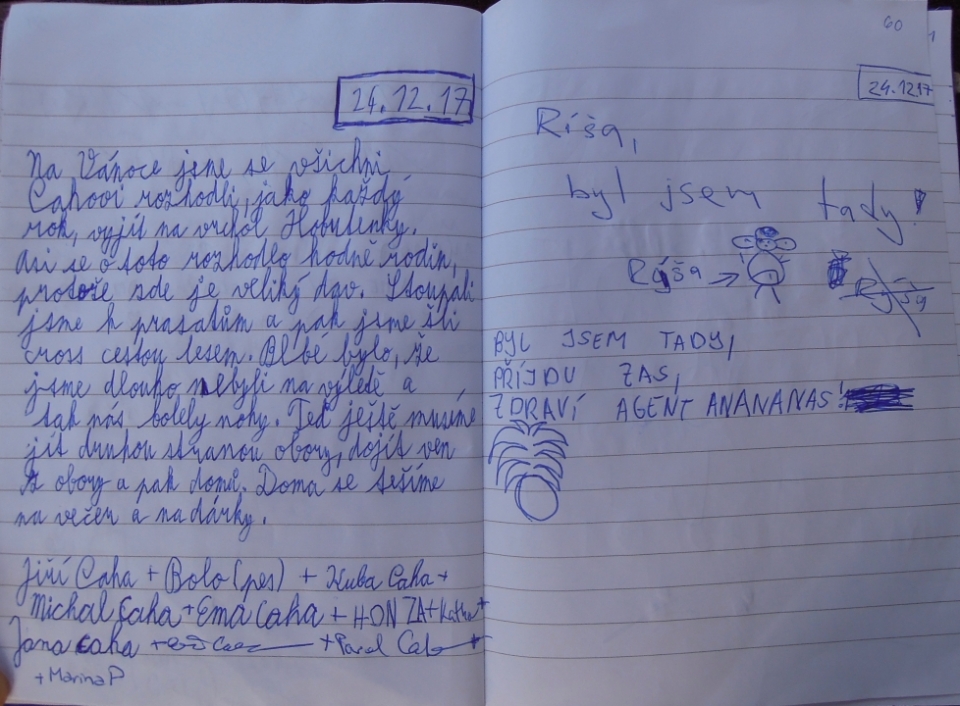 24.12.17
Na Vánoce jsme se všichni
Cahovi rozhodli, jako každý
rok, vyjít na vrchol Hobulenky.
Asi se o toto rozhodlo hodně rodin,
protože zde je veliký dav. Stoupali
jsme k prasatům a pak jsme šli
cross cestou lesem. Blbé bylo, že
jsme dlouho nebyli na výletě a
tak nás bolely nohy. Teď ještě musíme
jít druhou stranou obory, dojít ven
z obory a pak domů. Doma se těšíme
na večer a na dárky.
Jiří Caha + Bolo (pes) + Kuba Caha +
Michal Caha + Ema Caha + HONZA +
Jana Caha + + Pavel Caha +
+ Marina P
60
24.12.17
Ríša,
byl jsem tady!
Rýša
Rýša
BYL JSEM TADY,
PŘÍJDU ZAS,
ZDRAVÍ AGENT ANANANAS!